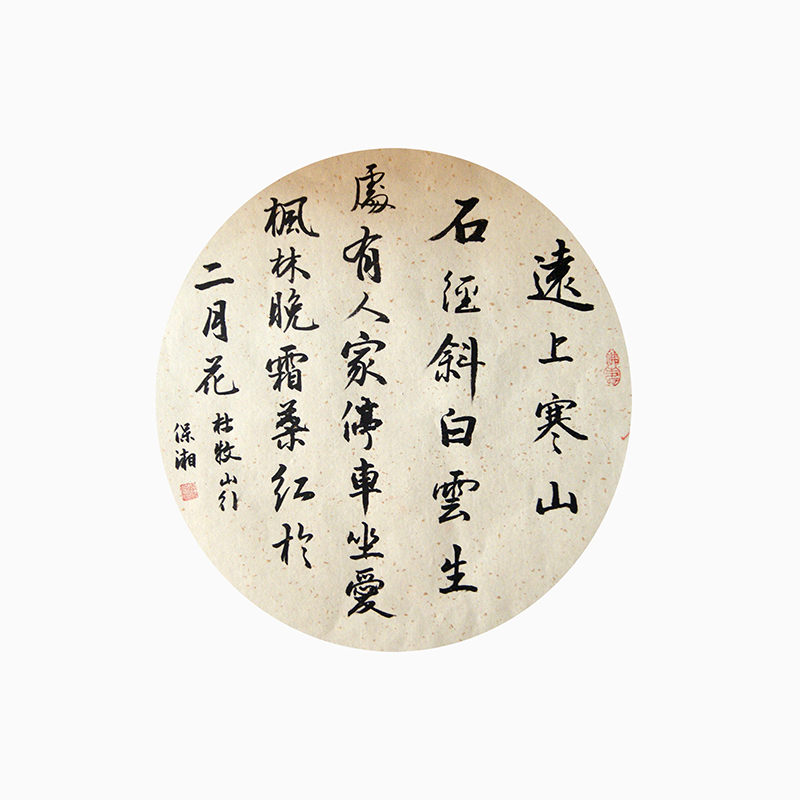 遠上寒山
石徑斜白雲生
處有人家停車坐愛
楓林晚霜葉紅於
二月花
杜牧山行
保湘